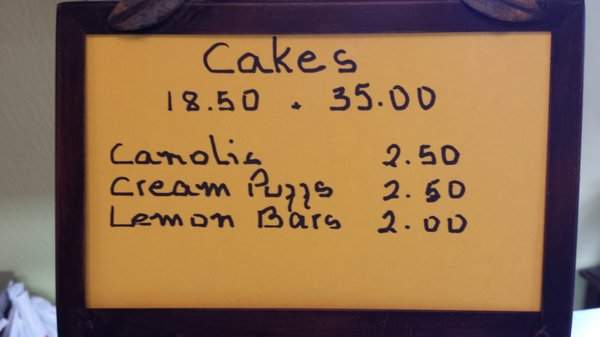 Cakes
18.50 . 35.00
Canolis 2.50
Cream Puffs 2.50
Lemon Bars 2.00